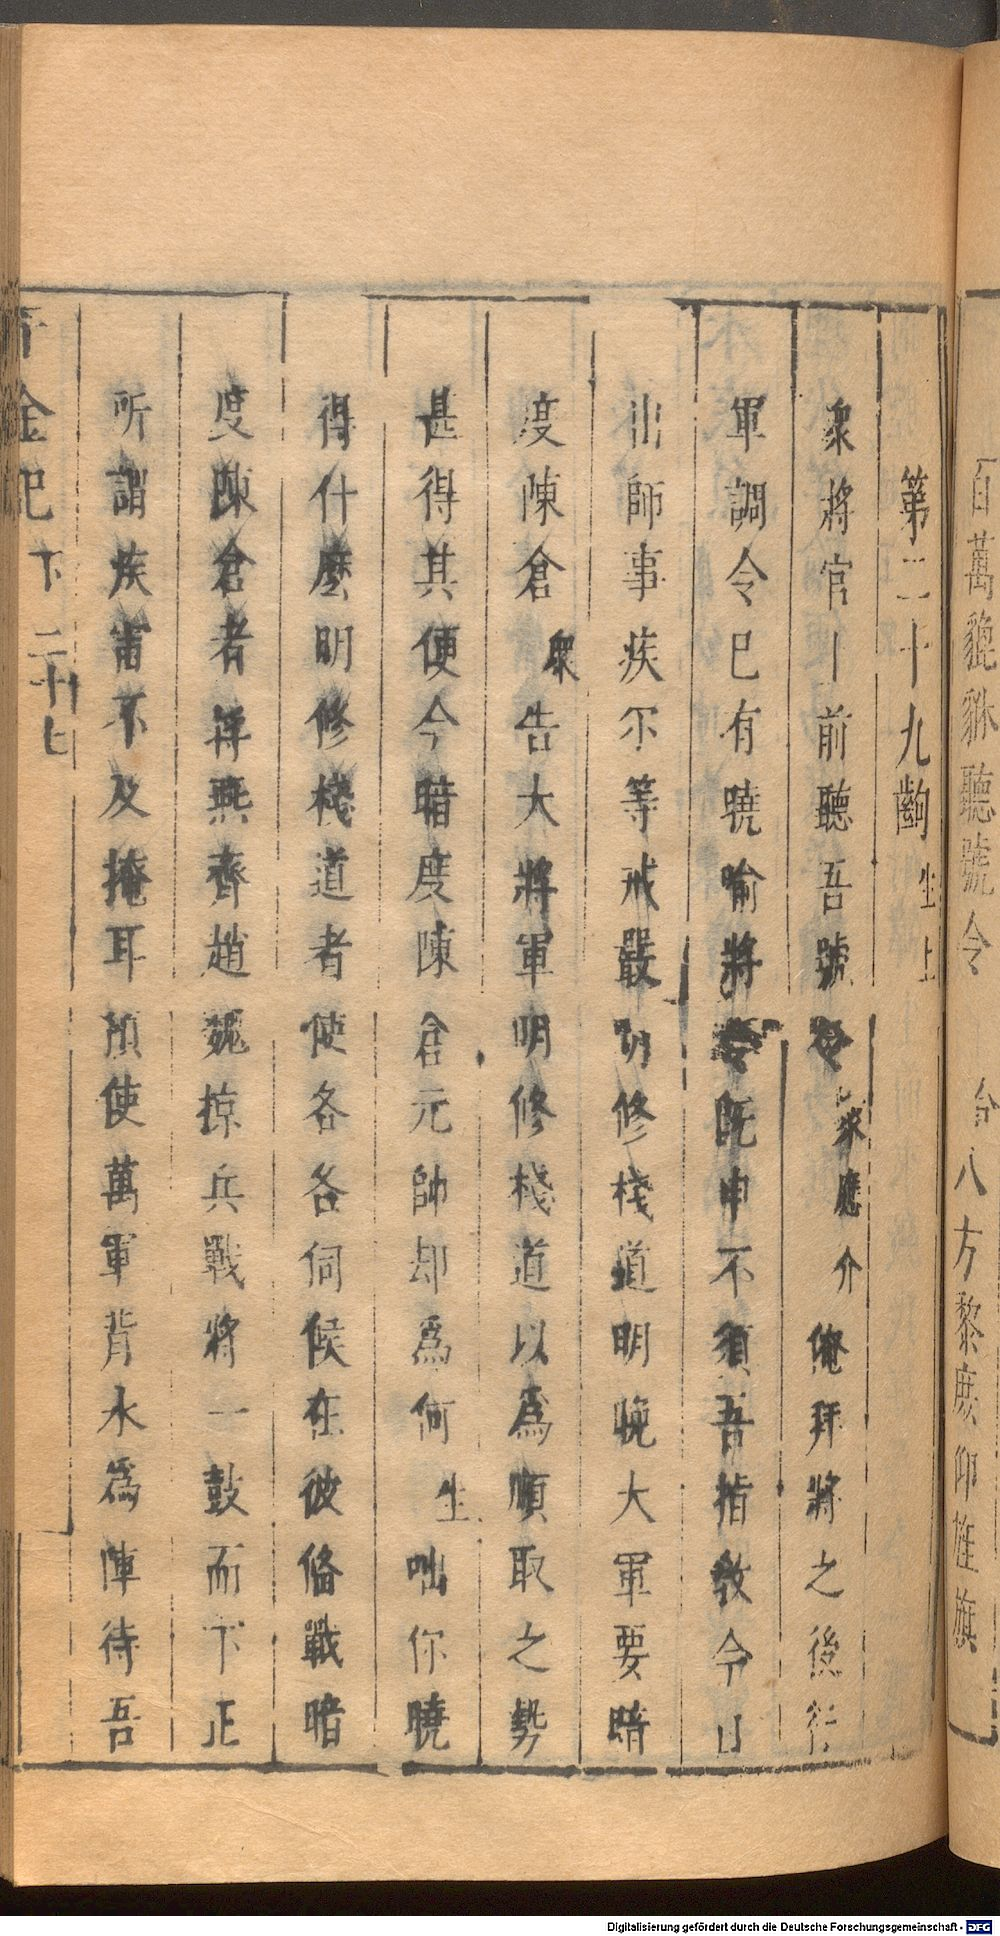 百萬貔貅聽號令　合八方黎庶仰旌旗
第二十九齣生上
眾將官上前聽吾號令眾應介俺拜將之後行
軍調令已有曉喻將令既申不須吾指教今日
出師事疾尔等戒嚴明修棧道明晚大軍要暗
度陳倉眾告大將軍明修棧道以為順取之勢
甚得其便今暗度陳倉元帥却為何生咄你曉
得什麼明修棧道者使各各伺候在彼俻戰暗
度陳倉者將燕齊趙魏掠兵戰將一鼓而下正
所謂疾雷不及掩耳預使萬軍背水為陣待吾
千金記 下 二十七
Digitalisierung gefördert durch die Deutsche Forschungsgemeinschaft - DFG